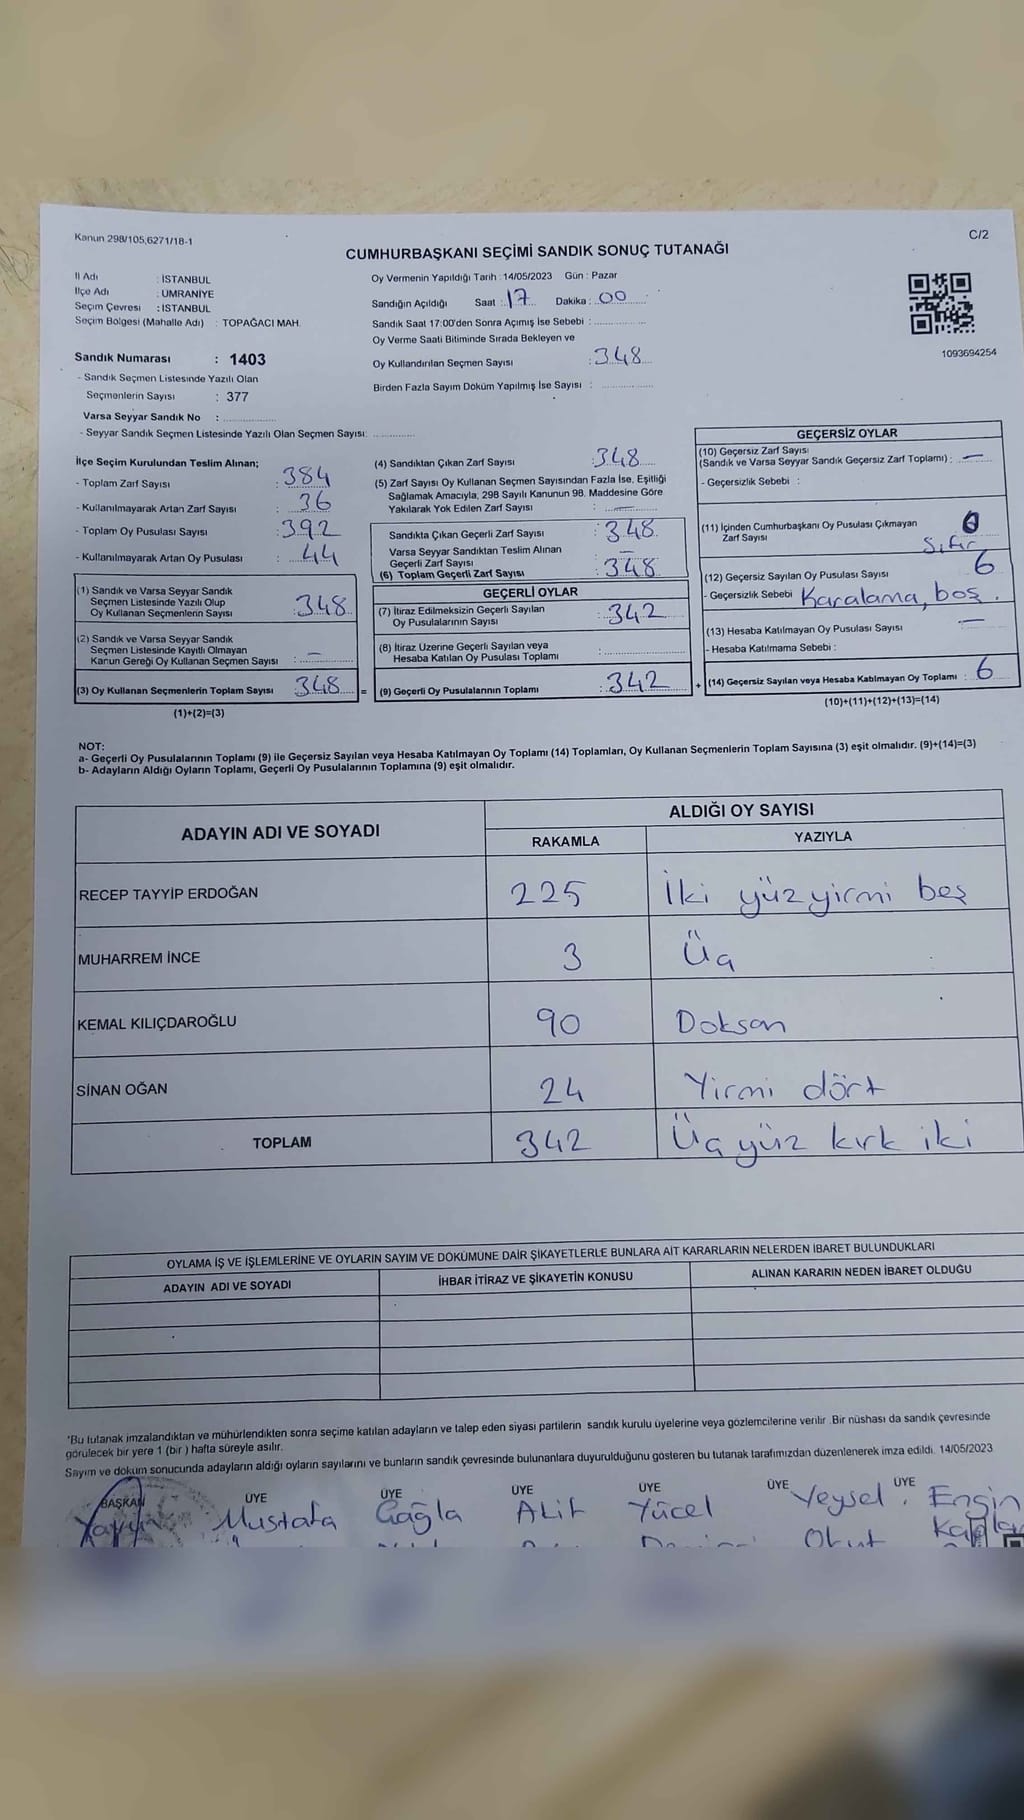 Kanun 298/105,6271/18-1
C/2
CUMHURBAŞKANI SEÇİMİ SANDIK SONUÇ TUTANAĞI
İl Adı : İSTANBUL
İlçe Adı : ÜMRANİYE
Seçim Çevresi : İSTANBUL
Seçim Bölgesi (Mahalle Adı) : TOPAĞACI MAH.
Sandık Numarası : 1403
- Sandık Seçmen Listesinde Yazılı Olan
Seçmenlerin Sayısı : 377
Varsa Seyyar Sandık No :
- Seyyar Sandık Seçmen Listesinde Yazılı Olan Seçmen Sayısı:
Oy Vermenin Yapıldığı Tarih : 14/05/2023 Gün : Pazar
Sandığın Açıldığı Saat : 17 Dakika : 00
Sandık Saat 17:00'den Sonra Açımış İse Sebebi :
Oy Verme Saati Bitiminde Sırada Bekleyen ve
Oy Kullandırılan Seçmen Sayısı : 348
Birden Fazla Sayım Döküm Yapılmış İse Sayısı :
1093694254
İlçe Seçim Kurulundan Teslim Alınan;
- Toplam Zarf Sayısı : 384
- Kullanılmayarak Artan Zarf Sayısı : 36
- Toplam Oy Pusulası Sayısı : 392
- Kullanılmayarak Artan Oy Pusulası : 44
(1) Sandık ve Varsa Seyyar Sandık
Seçmen Listesinde Yazılı Olup
Oy Kullanan Seçmenlerin Sayısı : 348
(2) Sandık ve Varsa Seyyar Sandık
Seçmen Listesinde Kayıtlı Olmayan
Kanun Gereği Oy Kullanan Seçmen Sayısı : –
(3) Oy Kullanan Seçmenlerin Toplam Sayısı : 348 =
(1)+(2)=(3)
(4) Sandıktan Çıkan Zarf Sayısı : 348
(5) Zarf Sayısı Oy Kullanan Seçmen Sayısından Fazla İse, Eşitliği
Sağlamak Amacıyla, 298 Sayılı Kanunun 98. Maddesine Göre
Yakılarak Yok Edilen Zarf Sayısı : –
Sandıkta Çıkan Geçerli Zarf Sayısı : 348
Varsa Seyyar Sandıktan Teslim Alınan
Geçerli Zarf Sayısı : –
(6) Toplam Geçerli Zarf Sayısı : 348
GEÇERLİ OYLAR
(7) İtiraz Edilmeksizin Geçerli Sayılan
Oy Pusulalarının Sayısı : 342
(8) İtiraz Üzerine Geçerli Sayılan veya
Hesaba Katılan Oy Pusulası Toplamı :
(9) Geçerli Oy Pusulalarının Toplamı : 342 +
GEÇERSİZ OYLAR
(10) Geçersiz Zarf Sayısı
(Sandık ve Varsa Seyyar Sandık Geçersiz Zarf Toplamı) : –
- Geçersizlik Sebebi :
(11) İçinden Cumhurbaşkanı Oy Pusulası Çıkmayan
Zarf Sayısı 0
Sıfır
(12) Geçersiz Sayılan Oy Pusulası Sayısı 6
- Geçersizlik Sebebi Karalama, boş.
(13) Hesaba Katılmayan Oy Pusulası Sayısı –
- Hesaba Katılmama Sebebi :
(14) Geçersiz Sayılan veya Hesaba Katılmayan Oy Toplamı : 6
(10)+(11)+(12)+(13)=(14)
NOT:
a- Geçerli Oy Pusulalarının Toplamı (9) ile Geçersiz Sayılan veya Hesaba Katılmayan Oy Toplamı (14) Toplamları, Oy Kullanan Seçmenlerin Toplam Sayısına (3) eşit olmalıdır. (9)+(14)=(3)
b- Adayların Aldığı Oyların Toplamı, Geçerli Oy Pusulalarının Toplamına (9) eşit olmalıdır.
ADAYIN ADI VE SOYADI
ALDIĞI OY SAYISI
RAKAMLA YAZIYLA
RECEP TAYYİP ERDOĞAN 225 İki yüz yirmi beş
MUHARREM İNCE 3 Üç
KEMAL KILIÇDAROĞLU 90 Doksan
SİNAN OĞAN 24 Yirmi dört
TOPLAM 342 Üç yüz kırk iki
OYLAMA İŞ VE İŞLEMLERİNE VE OYLARIN SAYIM VE DÖKÜMÜNE DAİR ŞİKAYETLERLE BUNLARA AİT KARARLARIN NELERDEN İBARET BULUNDUKLARI
ADAYIN ADI VE SOYADI İHBAR İTİRAZ VE ŞİKAYETİN KONUSU ALINAN KARARIN NEDEN İBARET OLDUĞU
*Bu tutanak imzalandıktan ve mühürlendikten sonra seçime katılan adayların ve talep eden siyasi partilerin sandık kurulu üyelerine veya gözlemcilerine verilir. Bir nüshası da sandık çevresinde
görülecek bir yere 1 (bir) hafta süreyle asılır.
Sayım ve döküm sonucunda adayların aldığı oyların sayılarını ve bunların sandık çevresinde bulunanlara duyurulduğunu gösteren bu tutanak tarafımızdan düzenlenerek imza edildi. 14/05/2023
BAŞKAN ÜYE ÜYE ÜYE ÜYE ÜYE ÜYE
Mustafa Çağla Akif Yücel Veysel Engin
Okut Kaplan